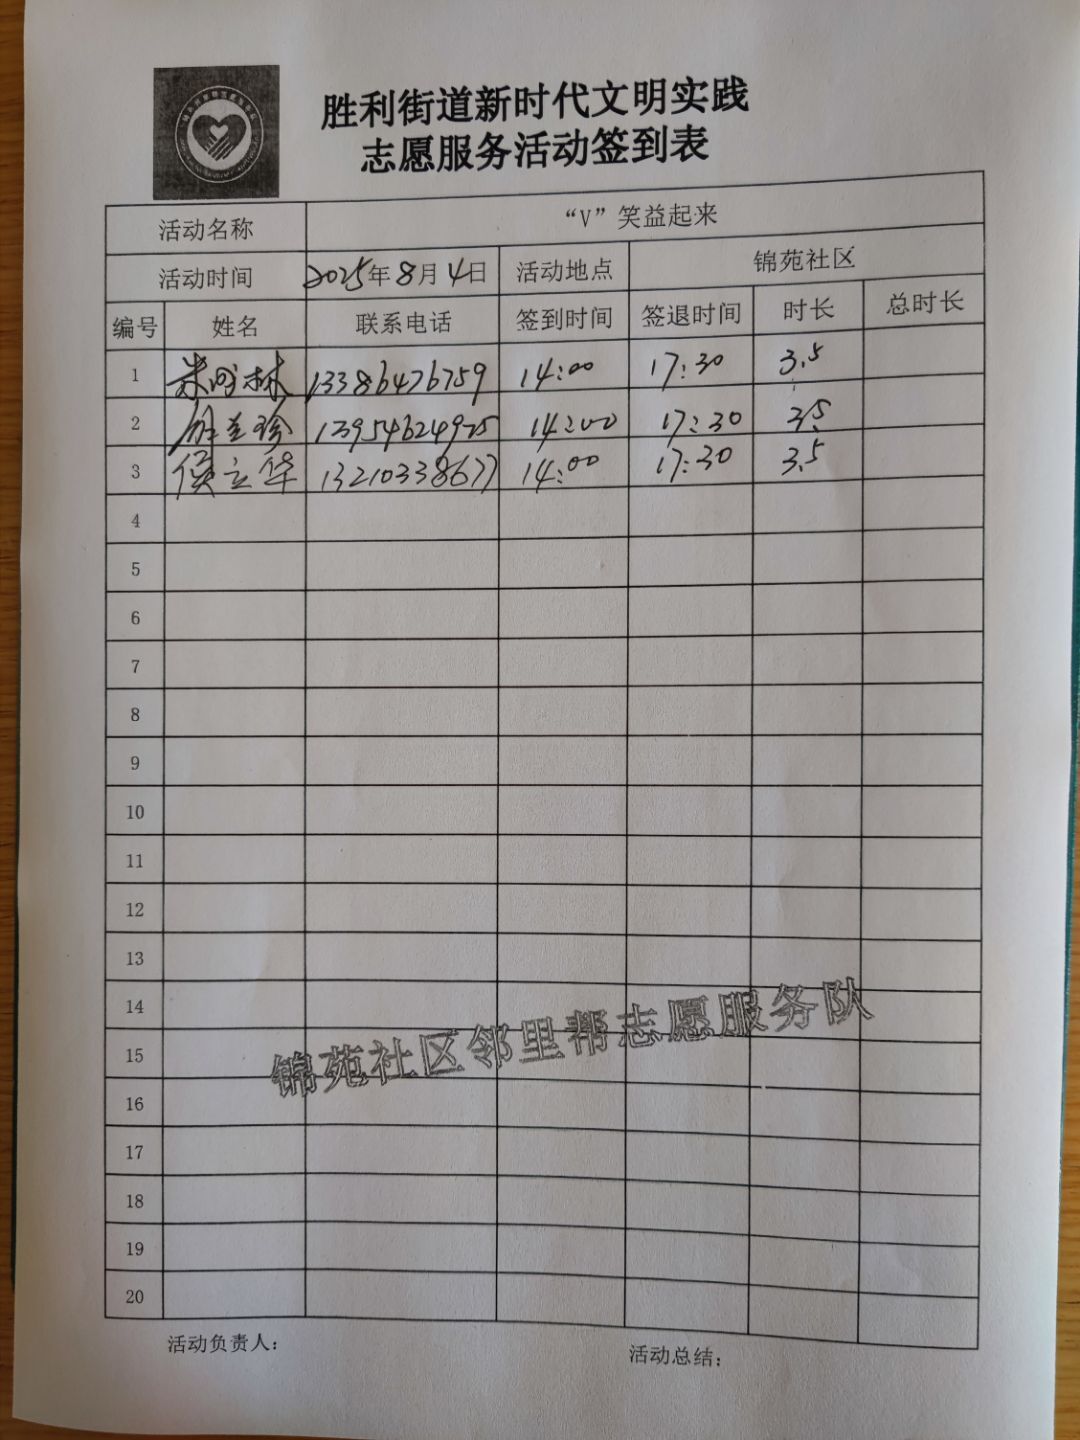 胜利街道新时代文明实践
志愿服务活动签到表
活动名称 “V”笑益起来
活动时间 2025年8月4日 活动地点 锦苑社区
编号 姓名 联系电话 签到时间 签退时间 时长 总时长
1 林 13386476759 14:00 17:30 3.5
2 13954624925 14:00 17:30 3.5
3 侯立华 13210338677 14:00 17:30 3.5
4
5
6
7
8
9
10
11
12
13
14
15
16
17
18
19
20
锦苑社区邻里帮志愿服务队
活动负责人：
活动总结：